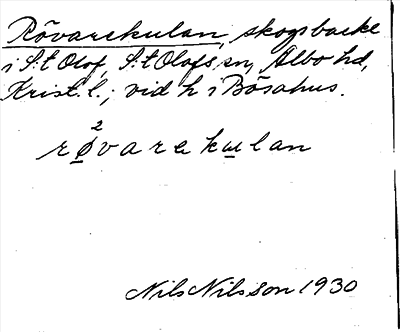 Rövarekulan, skogsbacke
i S:t Olof, S:t Olofs sn, Albo hd,
Krist. l.; vid h i Bösahus.
2
røvarekulan
Nils Nilsson 1930